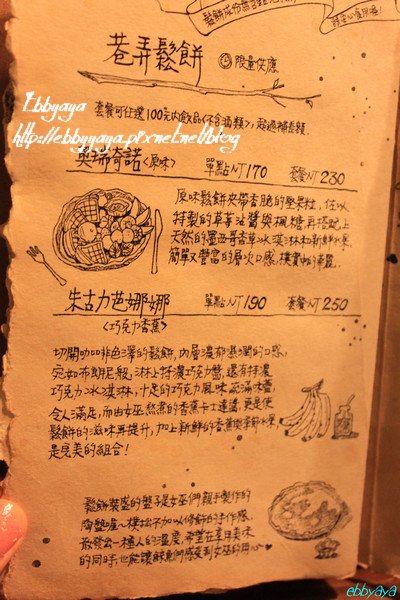 巷弄鬆餅
限量供應
Ebbyaya
http://ebbyyaya.pixnet.net/blog
套餐可任選100元內飲品<不含酒類>,超過補差額
奧瑞奇諾<原味> 單點NT170 套餐NT230
原味鬆餅夾帶香脆的堅果粒,在以
特製的草莓沾醬與楓糖,再搭配上
天然的墨西哥香草冰淇淋和新鮮水果
簡單又豐富的層次口感,樸實
朱古力芭娜娜 單點NT190 套餐NT250
<巧克力香蕉>
切開咖啡色澤的鬆餅,內層濃郁濕潤的口感,
宛如布朗尼般,淋上特濃巧克力醬,還有特濃
巧克力冰淇淋,十足的巧克力風味充滿味蕾,
令人滿足,而由女巫熬煮的香蕉卡士達醬,更是使
鬆餅的滋味再提升,加上新鮮的香蕉與季節水果
是完美的組合!
鬆餅裝盛的盤子是女巫們親手製作的
陶盤喔~樸拙不加以修飾的手作感,
散發出一種人的溫度,希望在享用美味
的同時,也能讓客們感受到女巫的用心♥
ebbyaya